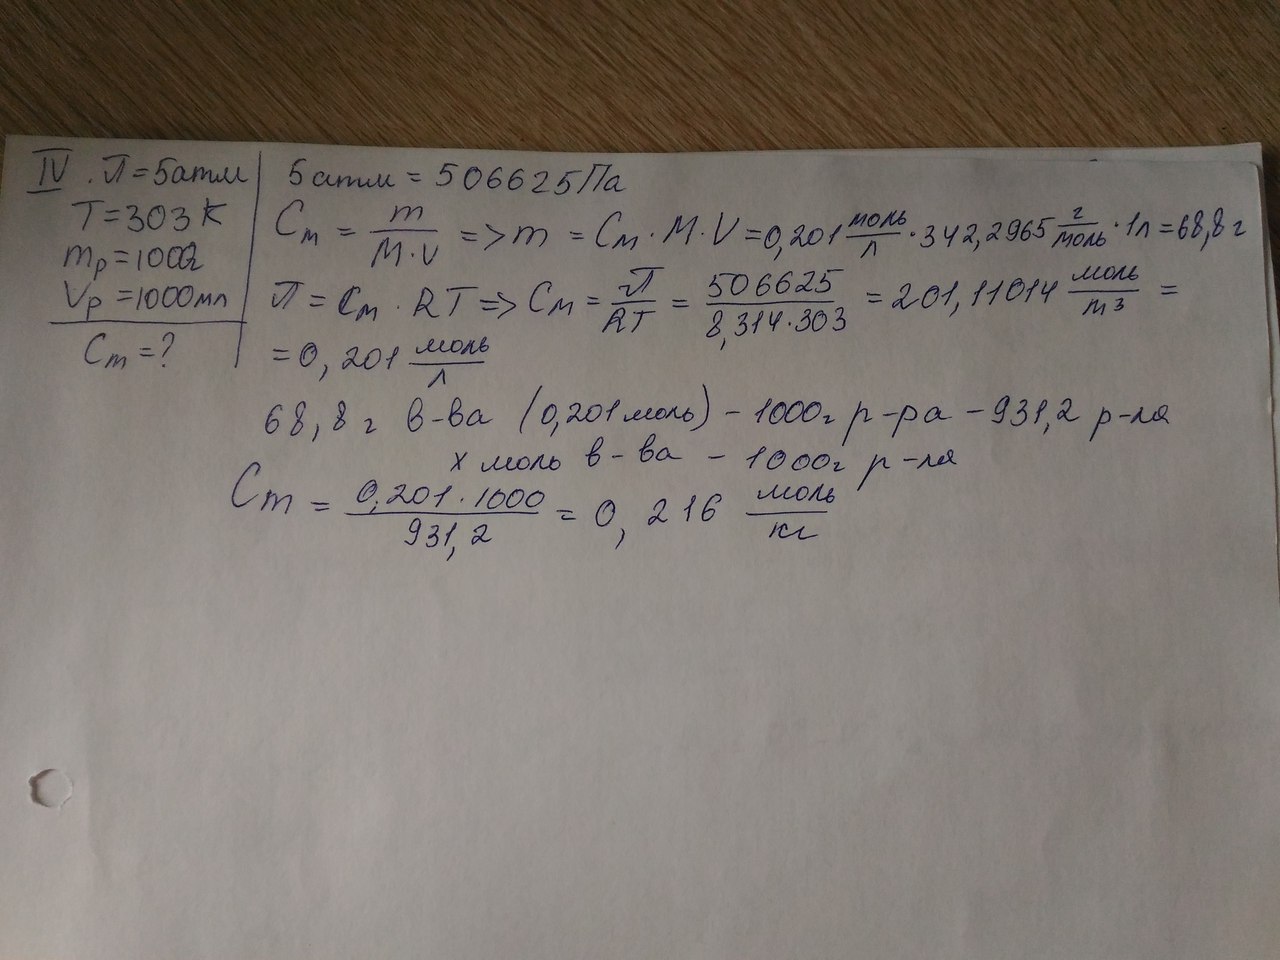 IV. π = 5 атм
T = 303 K
mр = 1000г
Vр = 1000мл
Cm = ?
5 атм = 506625 Па
Cм = m / M·V => m = Cм · M · V = 0,201 моль/л · 342,2965 г/моль · 1л = 68,8 г
π = Cм · RT => Cм = π/RT = 506625 / 8,314·303 = 201,11014 моль/m³ =
= 0,201 моль/л
68,8 г в-ва (0,201 моль) – 1000г р-ра – 931,2 р-ля
x моль в-ва – 1000г р-ля
Cm = 0,201·1000 / 931,2 = 0,216 моль/кг